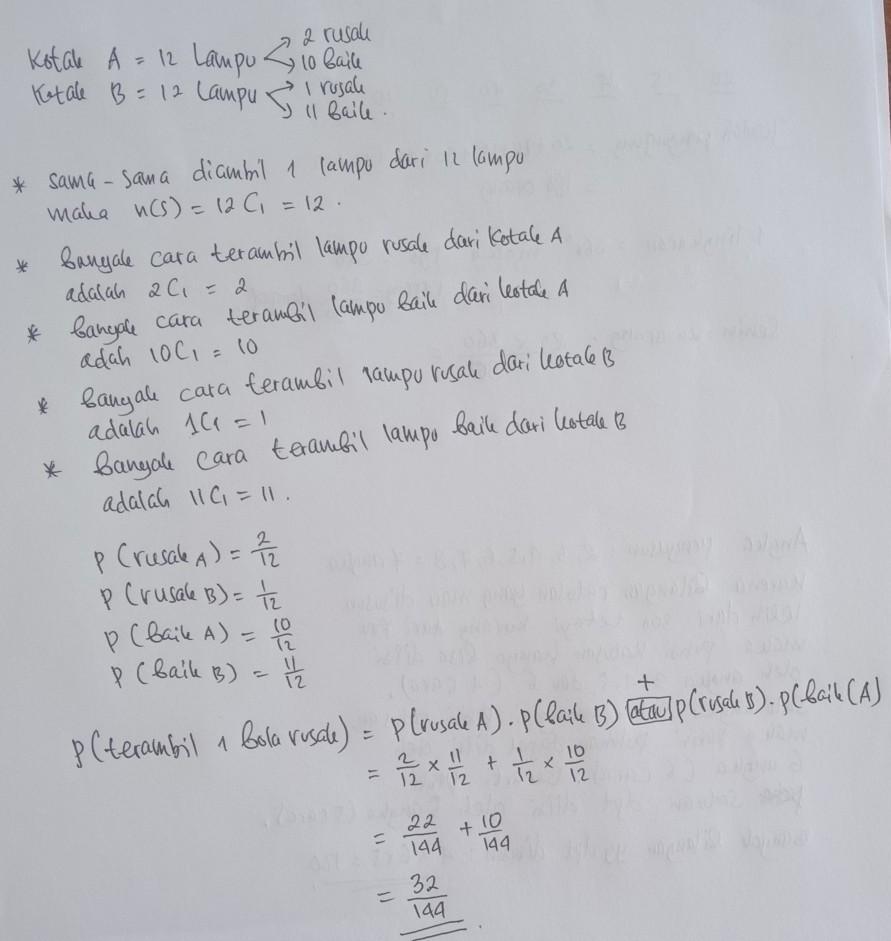 Kotak A = 12 Lampu 2 rusak
10 baik
Kotak B = 12 Lampu 1 rusak
11 baik.
* sama-sama diambil 1 lampu dari 12 lampu
maka n(S) = 12C₁ = 12.
* Banyak cara terambil lampu rusak dari kotak A
adalah 2C₁ = 2
* Banyak cara terambil lampu baik dari kotak A
adah 10C₁ = 10
* Banyak cara terambil lampu rusak dari kotak B
adalah 1C₁ = 1
* Banyak cara terambil lampu baik dari kotak B
adalah 11C₁ = 11.
P(rusak A) = 2/12
P(rusak B) = 1/12
P(baik A) = 10/12
P(baik B) = 11/12
+
P(terambil 1 bola rusak) = P(rusak A) . P(baik B) atau P(rusak B) . P(baik (A)
= 2/12 × 11/12 + 1/12 × 10/12
= 22/144 + 10/144
= 32/144.